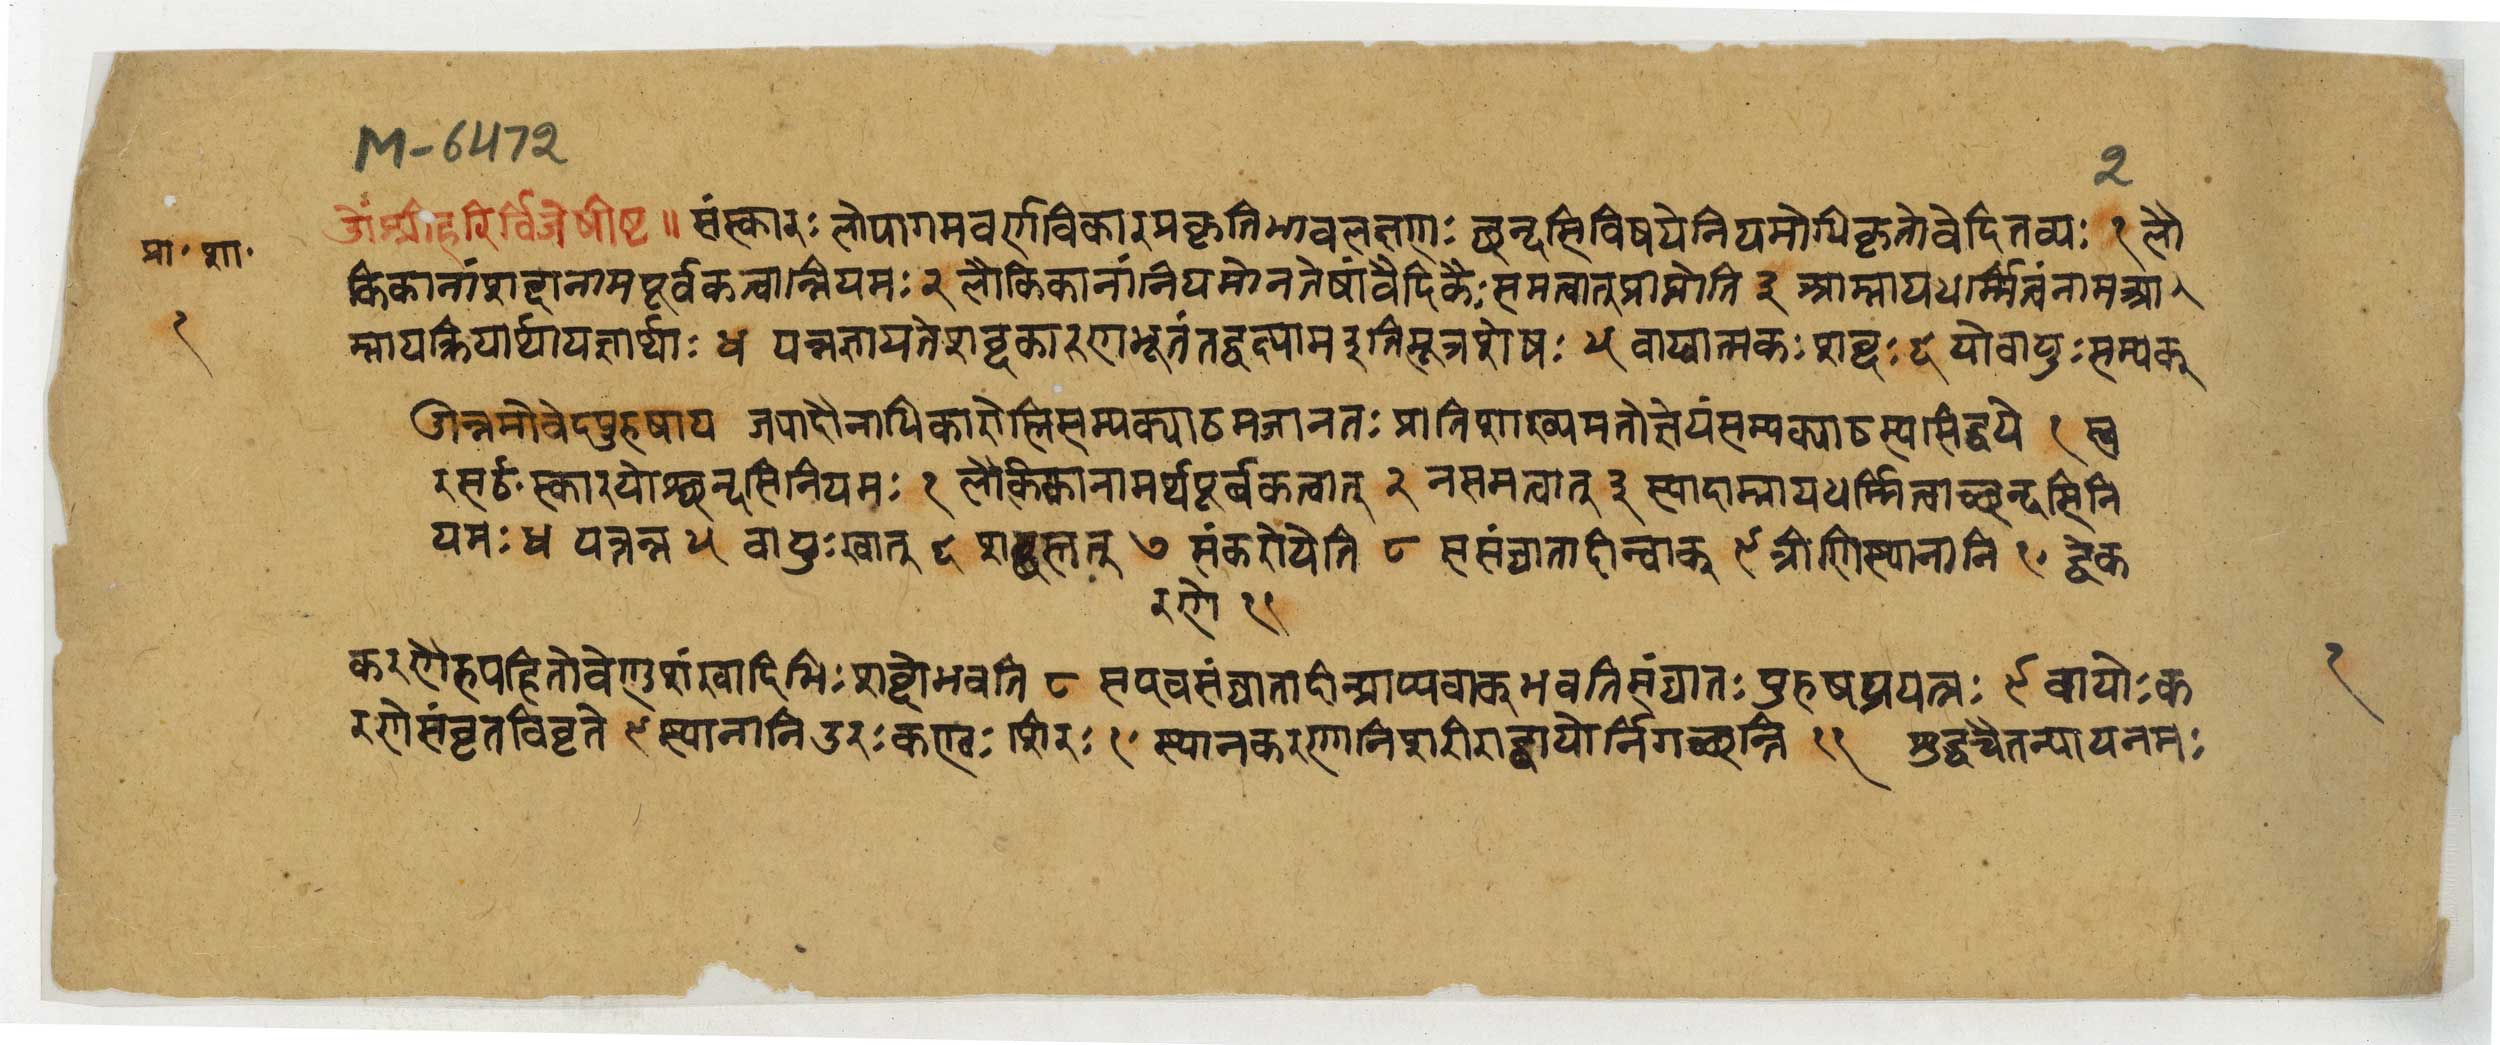 M-6472
2
ॐश्रीहरिर्विजेषीष्ट ॥ संस्कारः लोपागमवर्णविकारप्रकृतिभावलक्षणः छन्दसिविषयेनियमोधिकृतोवेदितव्यः १ लौ
प्रा॰ शा॰
किकानांशब्दानामपूर्वकत्वान्नियमः २ लौकिकानांनियमोनतेषांवैदिकैःसमत्वातुप्राप्नोति ३ आम्नायधर्म्मित्वंनामआ
१
म्नायक्रियार्थायज्ञार्थाः ४ यन्नज्ञायतेशब्दकारणभूतंतद्वक्ष्यामइतिसूत्रशेषः ५ वाय्वात्मकःशब्दः ६ योवायुःसम्यक्
ॐन्नमोवेदपुरुषाय जपादौनाधिकारोस्तिसम्यक्पाठमजानतः प्रातिशाख्यमतोज्ञेयंसम्यक्पाठस्यसिद्धये १ स्व
रसᳪस्कारयोश्छन्दसिनियमः १ लौकिकानामर्थपूर्वकत्वात् २ नसमत्वात् ३ स्यादाम्नायधर्म्मित्वाच्छन्दसिनि
यमः ४ यन्नन्न ५ वायुःखात् ६ शब्दस्तत् ७ संकरोपेति ८ ससंघातादीन्वाक् ९ त्रीणिस्थानानि १० द्वेक
रणे ११
करणैरुपहितोवेणुशंखादिभिःशब्दोभवति ८ सएवसंघातादीन्प्राप्यवाक्भवतिसंघातःपुरुषप्रयत्नः ९ वायोःक
१
रणेसंवृतविवृते ९ स्थानानिउरःकण्ठःशिरः १० स्थानकरणानिशरीराद्वायोर्निगच्छन्ति ११ शुद्धचैतन्यायनमः